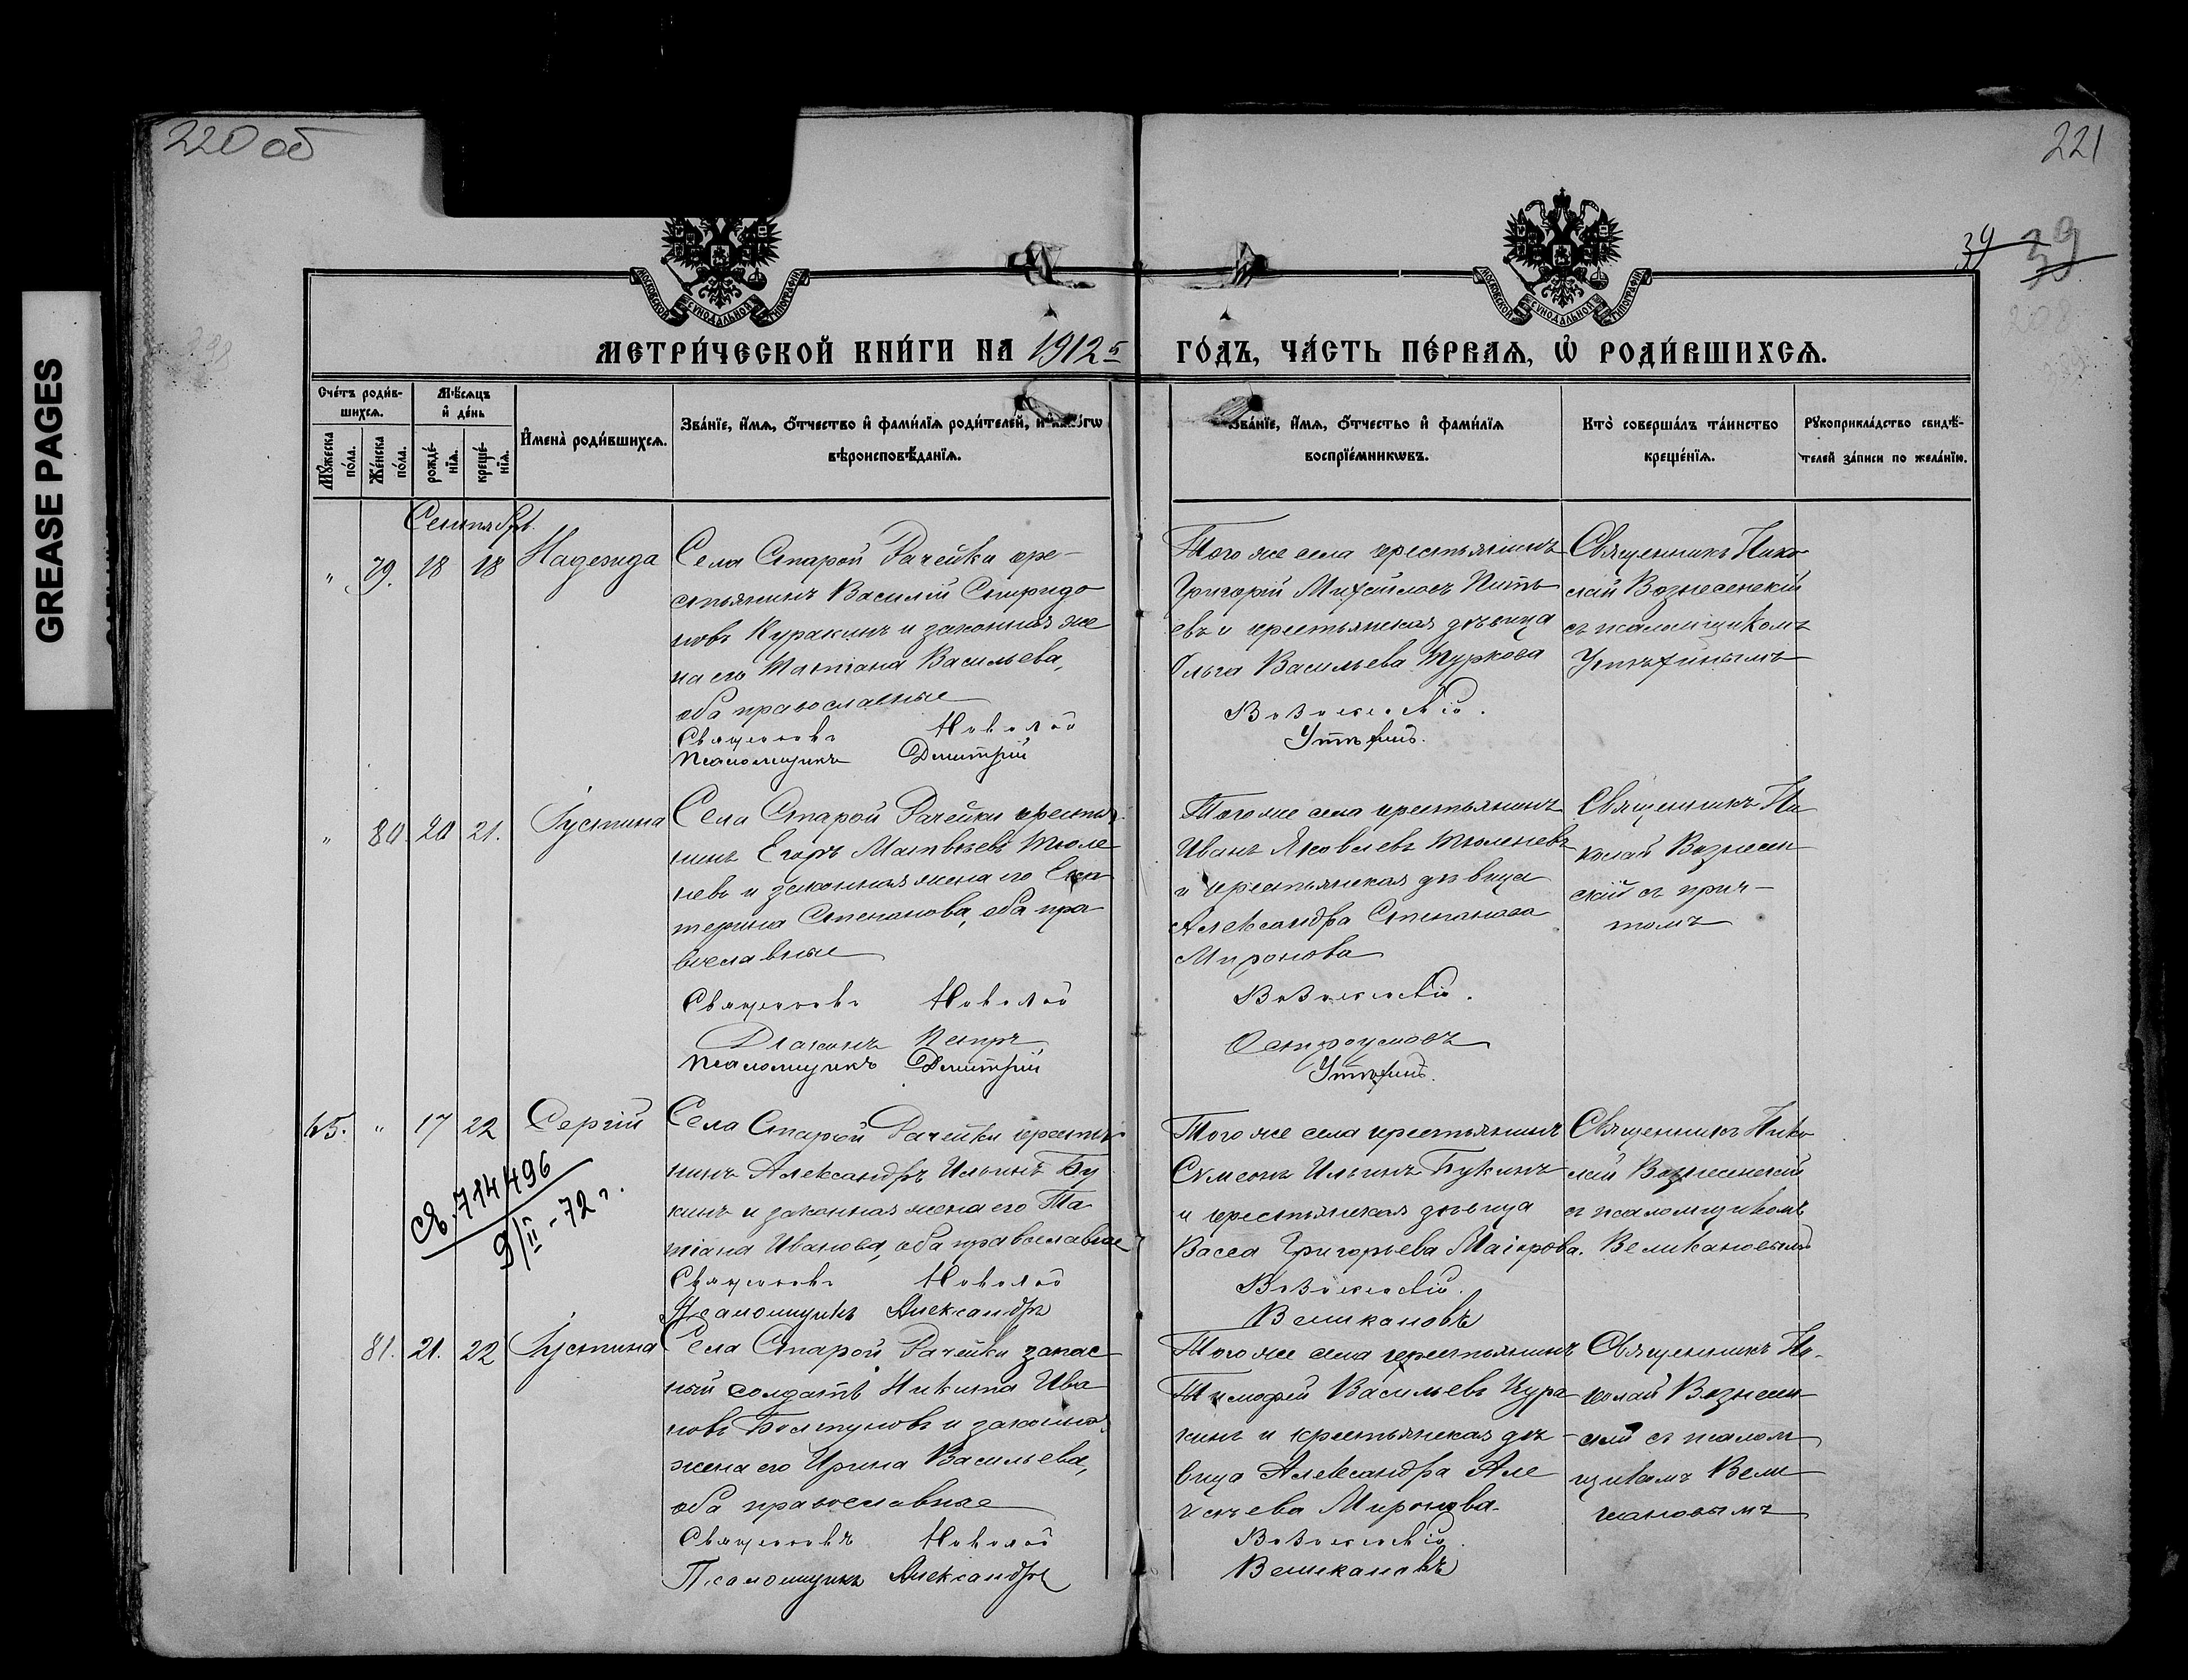 220 об
221
39 39
GREASE PAGES
МОСКОВСКОЙ СѴНОДАЛЬНОЙ ТИПОГРАФІИ
МОСКОВСКОЙ СѴНОДАЛЬНОЙ ТИПОГРАФІИ
МЕТРИ́ЧЕСКОЙ КНИ́ГИ НА 1912й ГО́ДЪ, ЧА́СТЬ ПЕ́РВАѦ, Ѡ҆ РОДИ́ВШИХСѦ.
Сче́тъ роди́в-
шихсѧ.
Мꙋ́жеска
по́ла.
Же́нска
по́ла.
Мѣ́сѧцъ
и҆ де́нь
рожде́-
нїѧ.
креще́-
нїѧ.
И҆мена̀ роди́вшихсѧ.
Зва́нїе, и҆́мѧ, ѻ҆́тчество и҆ фами́лїѧ роди́телей, и҆ како́гѡ
вѣроисповѣ́данїѧ.
Зва́нїе, и҆́мѧ, ѻ҆́тчество и҆ фами́лїѧ
воспрїе́мникѡвъ.
Кто̀ соверша́лъ та́инство
креще́нїѧ.
Рꙋкоприкла́дство свидѣ́-
телей за́писи по жела́нїю.
Сентябрь.
" 79. 18 18 Надежда
Села Старой Рачейки кре-
стьянинъ Василій Спиридо
новъ Куракинъ и законная же
на его Татіана Васильева,
оба православные
Священникъ Николай
Псаломщикъ Димитрій
Того же села крестьянинъ
Григорій Михайловъ Пить
евъ и крестьянская дѣвица
Ольга Васильева Туркова
Вознесенскій.
Утѣхинъ.
Священникъ Нико
лай Вознесенскій
съ псаломщикомъ
Утѣхинымъ
" 80. 20 21. Іустина
Села Старой Рачейки крестья
нинъ Егоръ Матвѣевъ Тюле
невъ и законная жена его Ека
терина Степанова, оба пра
вославные
Священникъ Николай
Діаконъ Петръ
Псаломщикъ Димитрій
Того же села крестьянинъ
Иванъ Яковлевъ Тюленевъ
и крестьянская дѣвица
Александра Степанова
Миронова
Вознесенскій.
Остроумовъ
Утѣхинъ.
Священникъ Ни
колай Вознесен
скій съ прич-
томъ
65. " 17 22 Сергій
св. 714496
9/II - 72 г.
Села Старой Рачейки крестья
нинъ Александръ Ильинъ Бу
кинъ и законная жена его Та
тіана Иванова, оба православные
Священникъ Николай
Псаломщикъ Александръ
Того же села крестьянинъ
Сѵмеонъ Ильинъ Букинъ
и крестьянская дѣвица
Васса Григорьева Маіорова.
Вознесенскій.
Великановъ
Священникъ Нико
лай Вознесенскій
съ псаломщикомъ
Великановымъ
81. 21. 22 Іустина
Села Старой Рачейки запас
ный солдатъ Никита Ива
новъ Болтуновъ и законная
жена его Ирина Васильева,
оба православные
Священникъ Николай
Псаломщикъ Александръ
Того же села крестьянинъ
Тимофей Васильевъ Кура
кинъ и крестьянская дѣ-
вица Александра Але
ксѣева Миронова.
Вознесенскій.
Великановъ
Священникъ Ни-
колай Вознесен
скій съ псалом
щикомъ Вели
кановымъ